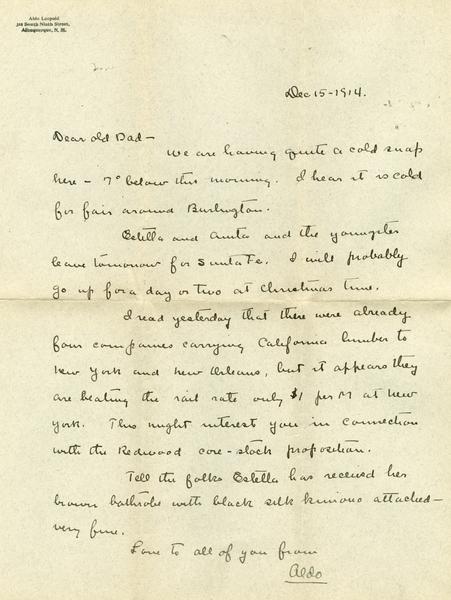 Aldo Leopold
Albuquerque, N. M.
Dec 15 - 1914.
Dear old Dad -
We are having quite a cold snap
here - 7° below this morning. I hear it is cold
for fair around Burlington.
Estella and Anita and the youngster
leave tomorrow for Santa Fe. I will probably
go up for a day or two at Christmas time.
I read yesterday that there were already
four companies carrying California lumber to
New York and New Orleans, but it appears they
are beating the rail rate only $1 per M at New
York. This might interest you in connection
with the Redwood core-stock proposition.
Tell the folks Estella has received her
brown bathrobe with black silk kimono attached -
very fine.
Love to all of you from
Aldo